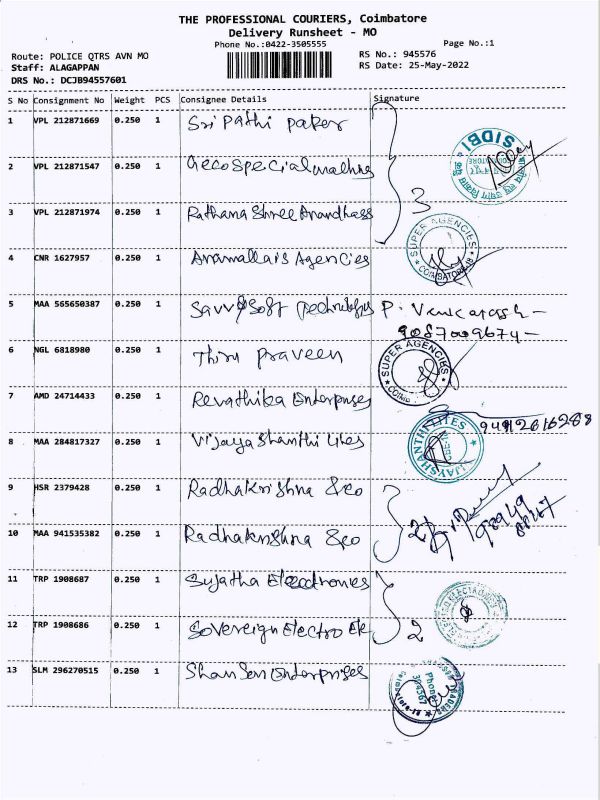 THE PROFESSIONAL COURIERS, Coimbatore
Delivery Runsheet - MO
Phone No.:0422-3505555 Page No.:1
Route: POLICE QTRS AVN MO RS No.: 945576
Staff: ALAGAPPAN RS Date: 25-May-2022
DRS No.: DCJB94557601
S No Consignment No Weight PCS Consignee Details Signature
1 VPL 212871669 0.250 1 Sri Pathi Paper
SIDBI
2 VPL 212871547 0.250 1 Geco Special
3 VPL 212871974 0.250 1 Rathana Shree 3
SUPER AGENCIES
4 CNR 1627957 0.250 1 Anamallais Agencies
5 MAA 565650387 0.250 1 Savvy Soft Technologies P. Venkatesh
9087009674
SUPER AGENCIES
6 NGL 6818980 0.250 1 Thiru Praveen
7 AMD 24714433 0.250 1 Revathika Enterprises
8 MAA 284817327 0.250 1 Vijaya Shanthi
9 HSR 2379428 0.250 1 Radhakrishna &co
2
10 MAA 941535382 0.250 1 Radhakrishna &co
11 TRP 1908687 0.250 1 Sujatha Electronics
12 TRP 1908686 0.250 1 Sovereign Electro 2
13 SLM 296270515 0.250 1 Shan Sen Enterprises